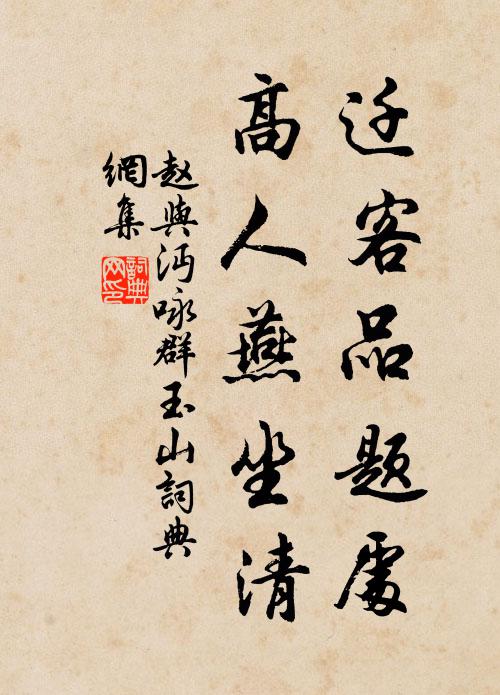 迁客品题處
高人燕坐清
赵與沔咏群玉山詞典
網集
詞典
网印